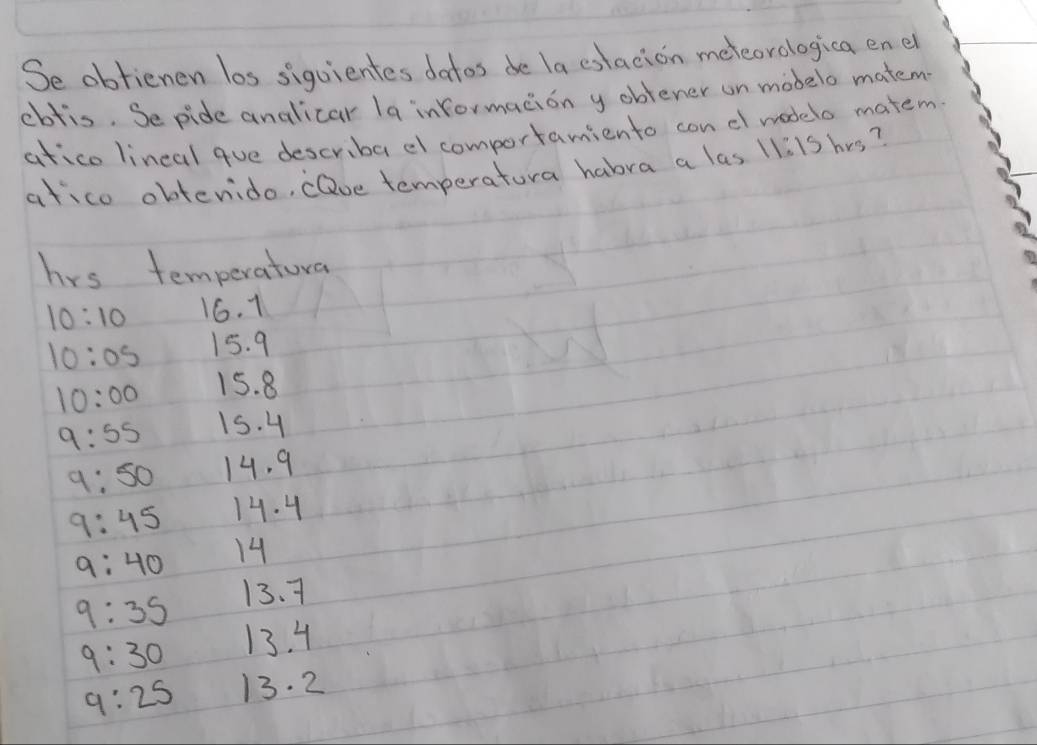 Se obtienen los siguientes datos de la estación meteorologica en el
cbtis. Se pide analicar la información y obtener un modelo matem-
atico lineal que describa el comportamiento con el modelo matem-
atico obtenido. ¿Que temperatura habra a las 11:15 hrs?
hrs temperatura
10:10 16.1
10:05 15.9
10:00 15.8
9:55 15.4
9:50 14.9
9:45 14.4
9:40 14
9:35 13.7
9:30 13.4
9:25 13.2